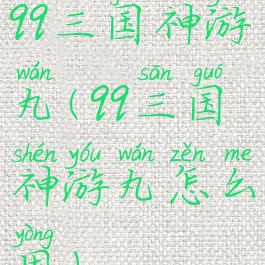 99三国神游
wán sān guó
丸(99三国
shén yóu wán zěn me
神游丸怎么
yòng
用)